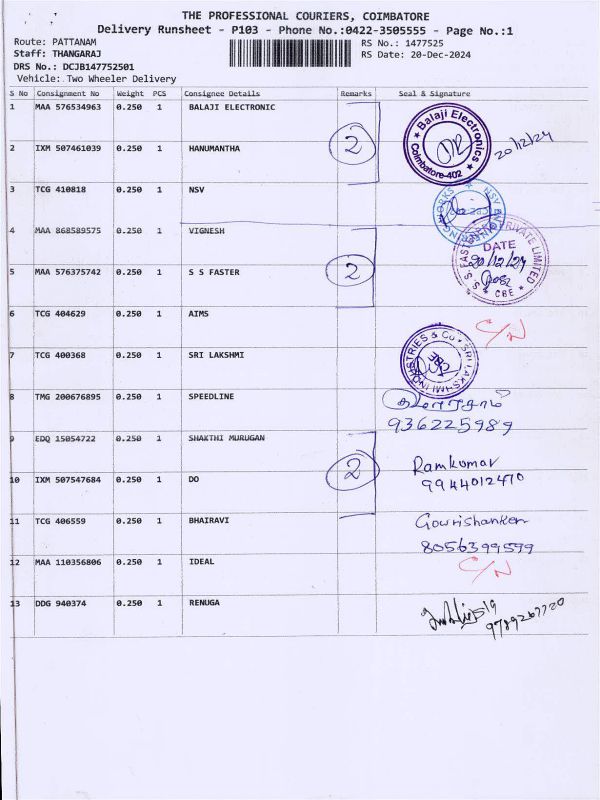 THE PROFESSIONAL COURIERS, COIMBATORE
Delivery Runsheet - P103 - Phone No.:0422-3505555 - Page No.:1
Route: PATTANAM RS No.: 1477525
Staff: THANGARAJ RS Date: 20-Dec-2024
DRS No.: DCJB147752501
Vehicle: Two Wheeler Delivery
S No Consignment No Weight PCS Consignee Details Remarks Seal & Signature
1 MAA 576534963 0.250 1 BALAJI ELECTRONIC
Balaji Electronics Coimbatore-402 20/12/24
2 IXM 507461039 0.250 1 HANUMANTHA 2
3 TCG 410818 0.250 1 NSV
4 MAA 868589575 0.250 1 VIGNESH
S.S. FASTENERS PRIVATE LIMITED CBE
DATE
20/12/24
5 MAA 576375742 0.250 1 S S FASTER 2
6 TCG 404629 0.250 1 AIMS C/N
7 TCG 400368 0.250 1 SRI LAKSHMI
SRI LAKSHMI INDUSTRIES & Co CBE
8 TMG 200676895 0.250 1 SPEEDLINE
936225989
9 EDQ 15054722 0.250 1 SHAKTHI MURUGAN
Ramkumar
10 IXM 507547684 0.250 1 DO 2 9944012470
11 TCG 406559 0.250 1 BHAIRAVI Gowrishanker
8056399599
12 MAA 110356806 0.250 1 IDEAL C/N
13 DDG 940374 0.250 1 RENUGA
9789267720